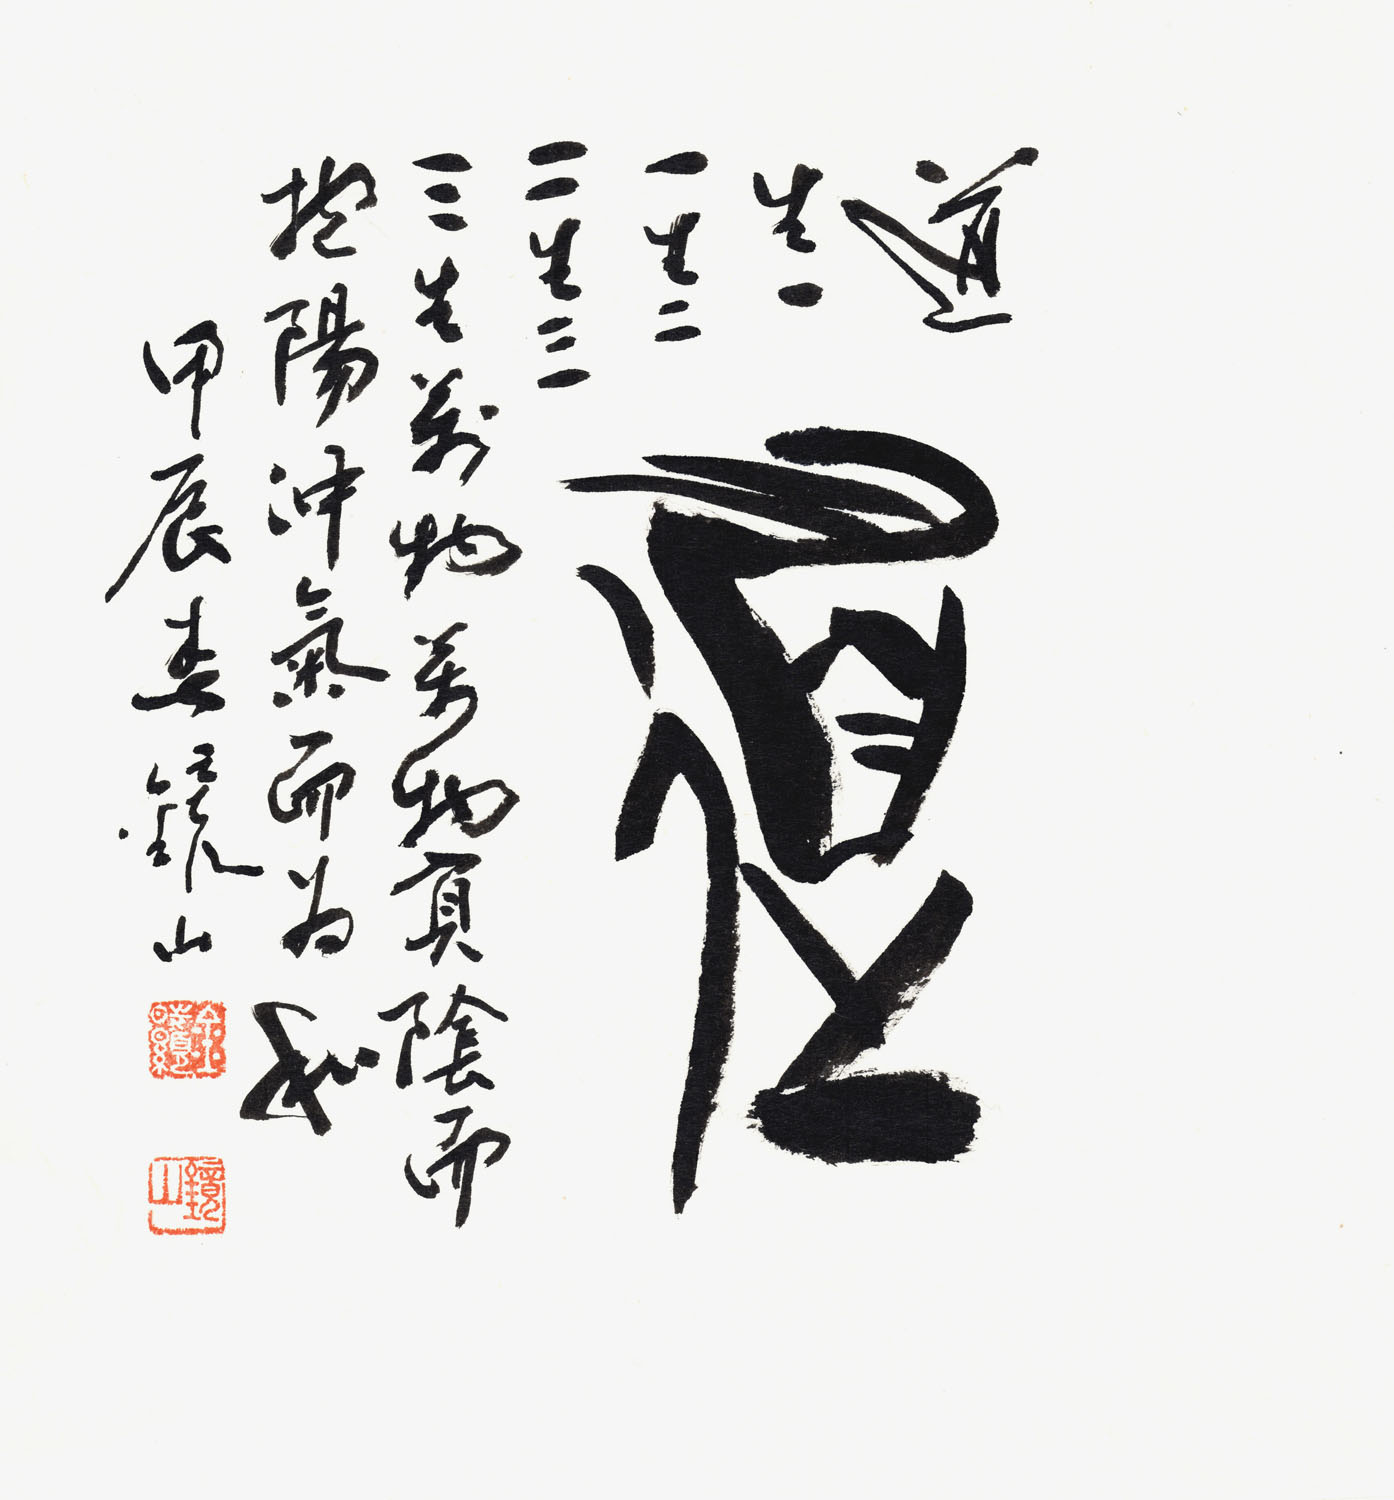 道
生一
一生二
二生三
三生萬物萬物負陰而
抱陽沖氣而为和
道
甲辰春鏡山
鏡山